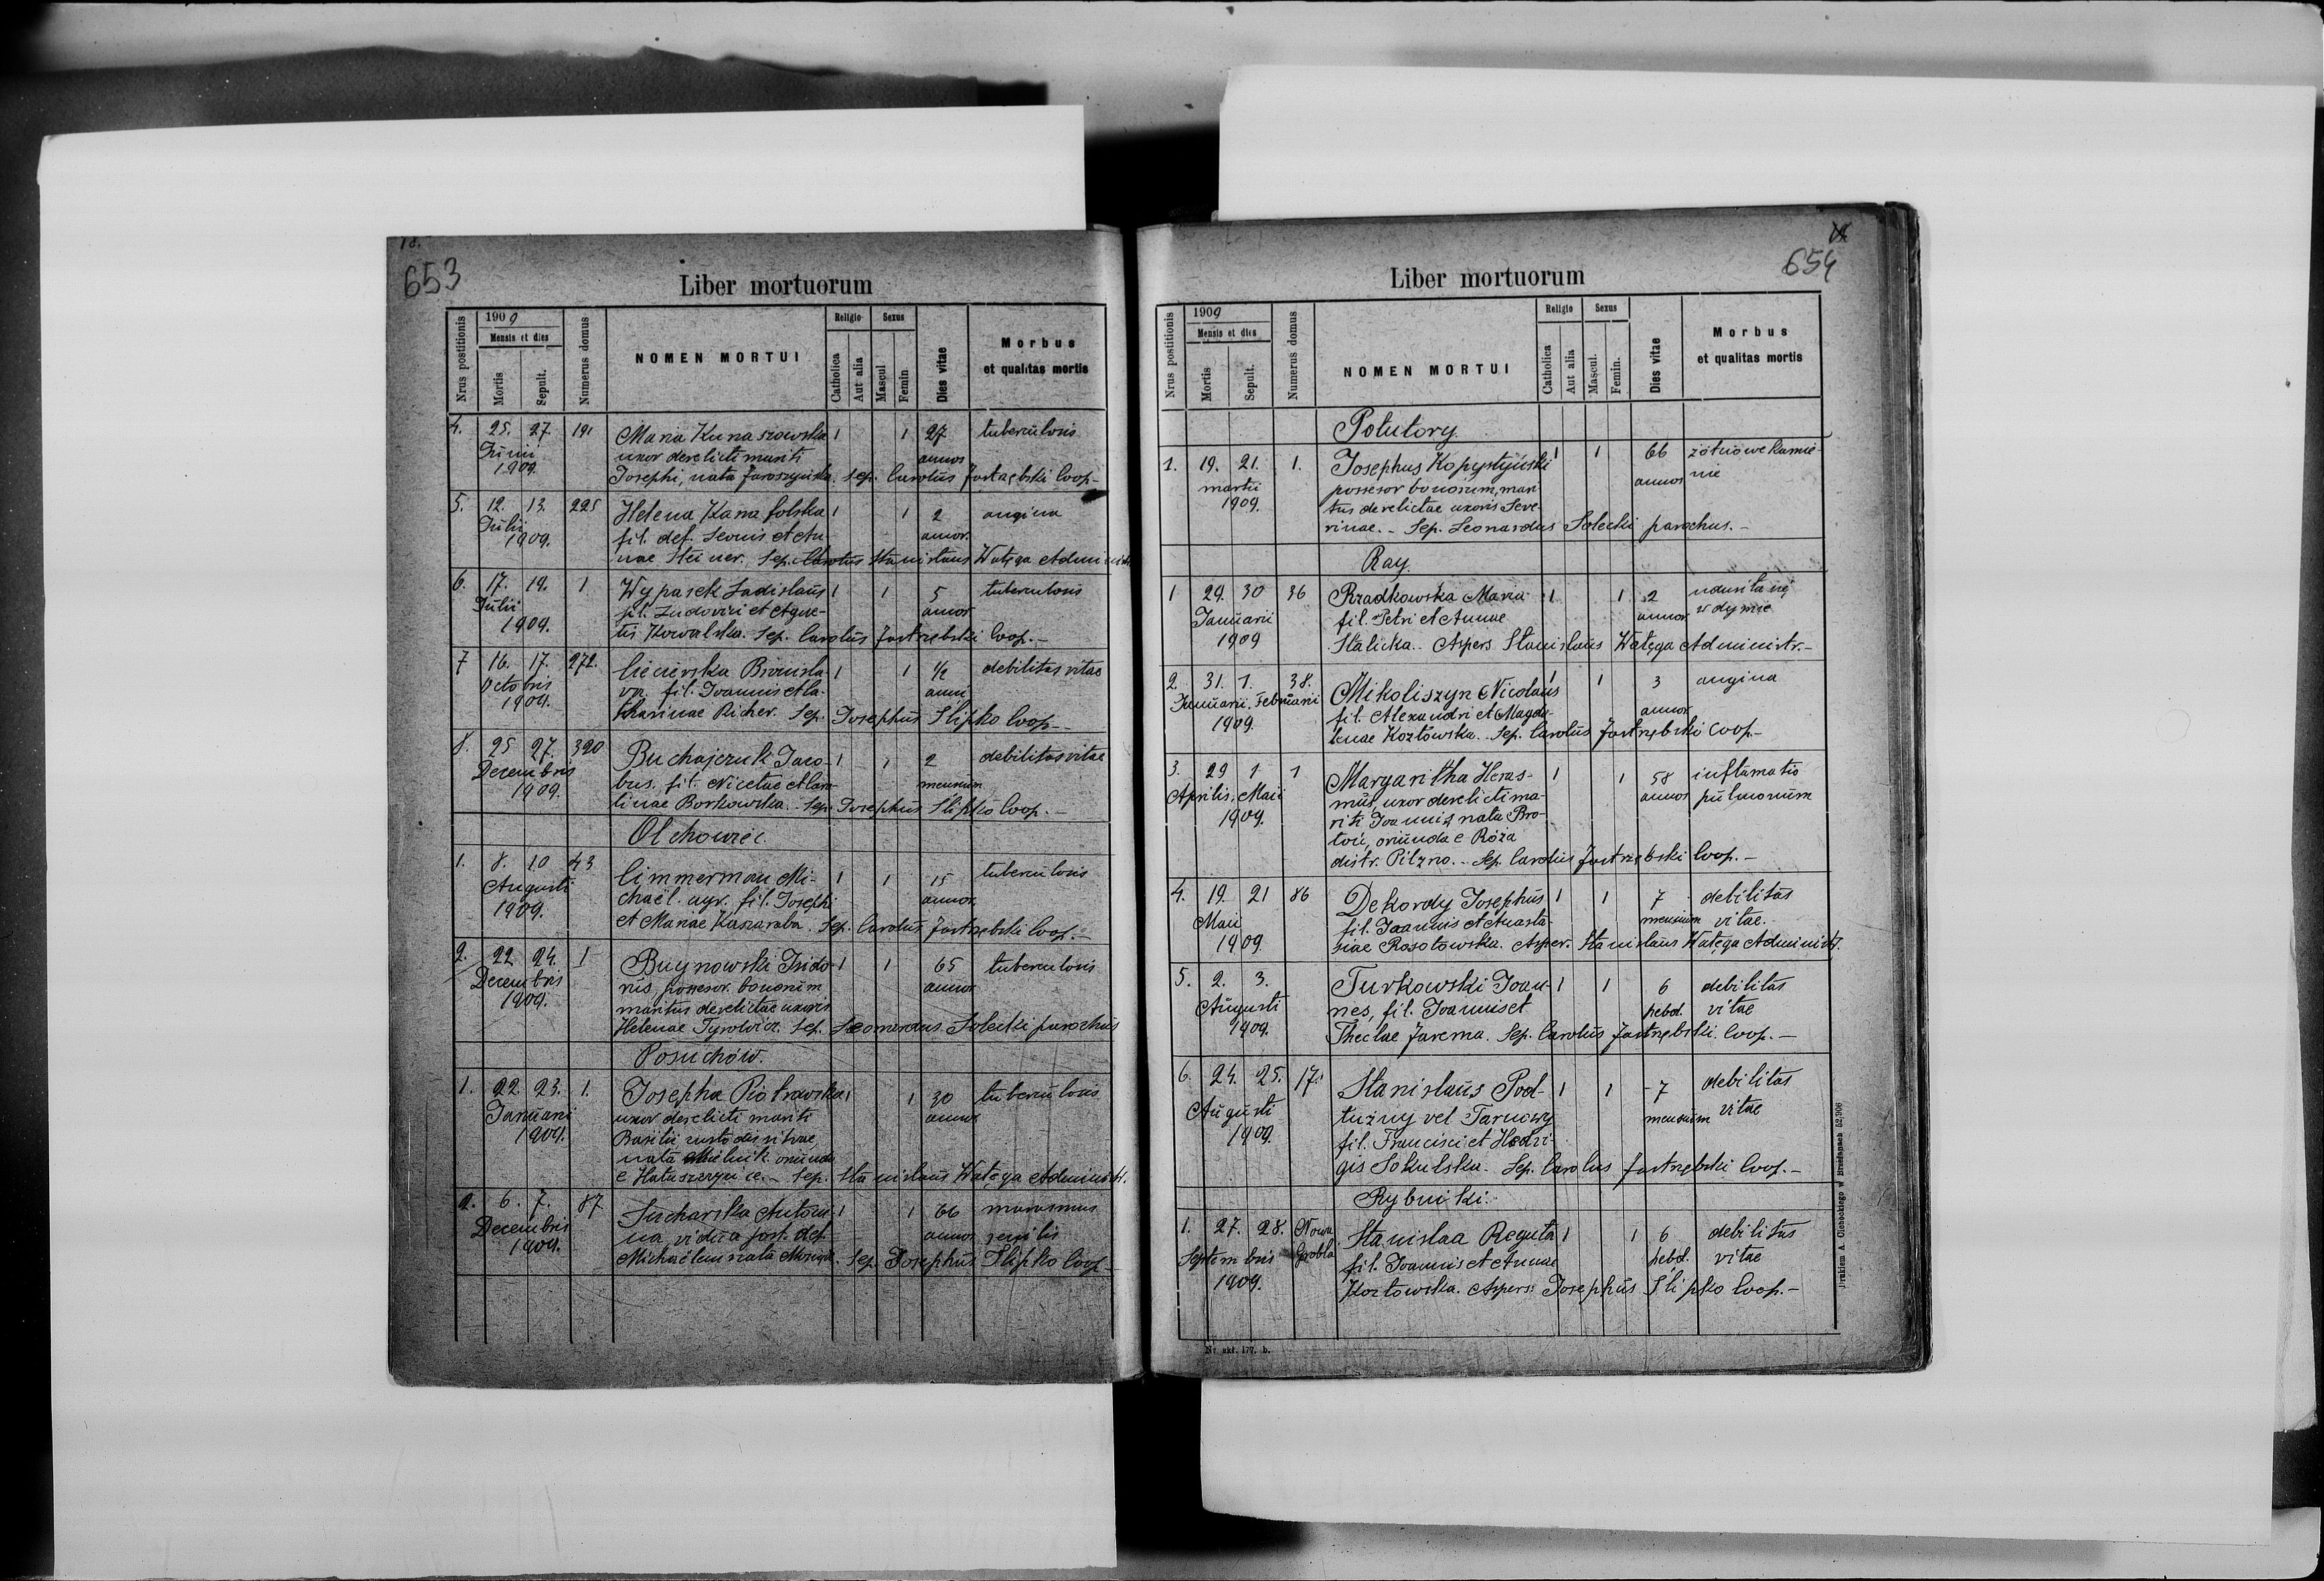 18.
653
Liber mortuorum
Nrus postitionis
1909
Mensis et dies
Mortis
Sepult.
Numerus domus
NOMEN MORTUI
Religio
Catholica
Aut alia
Sexus
Mascul
Femin
Dies vitae
Morbus
et qualitas mortis
4. 25. 27. 191 Maria Kunaszowska 1 1 27 tuberculosis
Junii uxor derelicti mariti annos
1909. Josephi, nata Jaroszyńska. Sep. Carolus Jastrzębski Coop.-
5. 12. 13. 225 Helena Kama 1 1 2 angina
Julii fil. def. Leonis et An- annor.
1909. nae Steiner. Sep. Carolus Stanislaus Wałęga Administr.
6. 17. 19. 1 Wypasek Ladislaus 1 1 5 tuberculosis
Julii fil. Ludovici et Agne- annor
1909. tis Kowalska. Sep. Carolus Jastrzębski Coop.-
7 16. 17. 272. Bronisla- 1 1 1/2 debilitas vitae
Octobris va, fil. Joannis et Ca- anni
1909. tharinae Richer. Sep. Josephus Slipko Coop.-
8. 25 27. 320 Buchajczuk Jaco- 1 1 2 debilitas vitae
Decembris bus, fil. Nicetae et Caro- mensium
1909. linae Borkowska. Sep. Josephus Slipko Coop.-
Olchowiec
1. 8. 10 43 Cimmerman Mi- 1 1 15 tuberculosis
Augusti chaël. agr. fil. Josephi annor.
1909. et Mariae Kaszaraba. Sep. Carolus Jastrzębski Coop.-
2. 22 24. 1 Buynowski Isido- 1 1 65 tuberculosis
Decembris rus, possesor bonorum annor
1909. maritus derelictae uxoris
Helenae Tyrowicz. Sep. Leonardus Solecki parochus
Posuchów.
1. 22 23. 1. Josepha Piotrowska 1 1 30 tuberculosis
Januarii uxor derelicti mariti annor
1909. Basilii custodis silvae,
nata Mielnik oriunda
e Hatuszczyńce.- Sep. Stanislaus Wałęga Administr.
2. 6. 7. 87 Sucharska Anto- 1 1 66 marasmus
Decembris na, vidua post. def. annor senilis
1909. Michaëlem nata. Sep. Josephus Slipko Coop.-
654
Liber mortuorum
Nrus postitionis
1909
Mensis et dies
Mortis
Sepult.
Numerus domus
NOMEN MORTUI
Religio
Catholica
Aut alia
Sexus
Mascul.
Femin.
Dies vitae
Morbus
et qualitas mortis
Potutory.
1. 19. 21. 1. Josephus Kopystyński 1 1 66 żółciowe kamie-
martii possesor bonorum, mari- annos nie
1909. tus derelictae uxoris Seve-
rinae.- Sep. Leonardus Solecki parochus.-
Ray.
1 29. 30 36 Rzadkowska Maria 1 1 2 udusiła się
Januarii fil. Petri et Annae annor w dymie
1909 Stalicka.- Aspers. Stanislaus Wałęga Administr.-
2. 31. 1. 38. Mikoliszyn Nicolaus 1 1 3 angina
Januarii, Februarii fil. Alexandri et Magda- annor
1909. lenae Kozłowska. Sep. Carolus Jastrzębski Coop.-
3. 29 1 1 Margaritha Heras- 1 1 58 inflamatio
Aprilis, Maii mut, uxor derelicti ma- annos pulmonum
1909. riti Joannis nata Bro-
toń, oriunda e Róża
distr. Pilzno.- Sep. Carolus Jastrzębski Coop.-
4. 19. 21 86 Dekordy Josephus 1 1 7 debilitas
Maii fil. Joannis et Anasta- mensium vitae.
1909 siae Rosołowska. Asper. Stanislaus Wałęga Administr.
5. 2. 3. Turkowski Joan- 1 1 6 debilitas
Augusti nes, fil. Joannis et hebd. vitae
1909. Theclae Jarema. Sep. Carolus Jastrzębski Coop.-
6. 24. 25. 17. Stanislaus Pod- 1 1 7 debilitas
Augusti tużny vel Tarnowy mensium vitae
1909. fil. Francisci et Hedvi-
gis Sokulska. Sep. Carolus Jastrzębski Coop.-
Rybniki.
1. 27. 28. Nowa Stanislaa Reguła 1 1 6 debilitas
Septembris Grobla fil. Joannis et Annae hebd. vitae
1909. Kozłowska. Aspers. Josephus Slipko Coop.-
Nr. skł. 177. b.
Drukiem A. Cichockiego w Brzeżanach 52.906